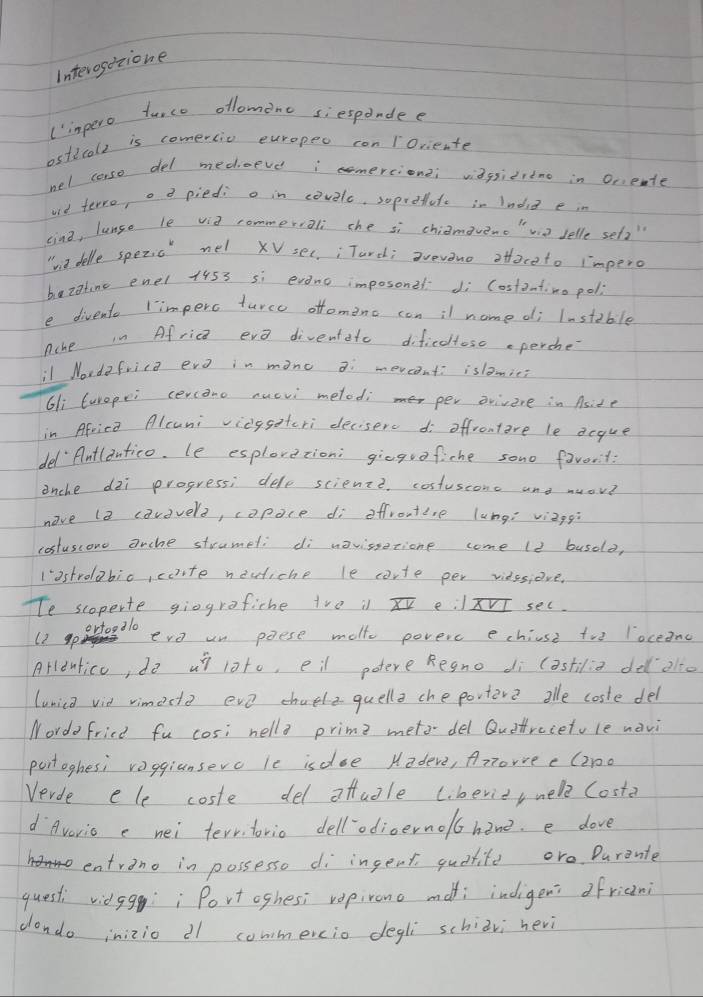 Interogazione
L'inpero turco ottomano si espande e
ostacola is comercio europeo con l'Oriente
nel corso del medioevo i comercianai viaggiarano in Oriente
via terra, o a piedi o in cavalo, sopratluto in India e in
cina, lungo le via commerciali che si chiamavano "via delle seta"
"via delle spezio" nel XV sec. i Turchi avevano attacato l'mpero
bazatino e nel 1453 si erano imposonati di Costantinopoli
e divento l'impero turco ottomano con il nome di Instabile
Ache in Africa era diventato dificoltoso e perche
il Nordafrica era in mano ai mercanti islamici
Gli Europei cercano nuovi metodi per arivare in Aside
in Africa Alcuni viaggatori decisero di affrontare le acque
del'Antlantico. le esplorazioni giografiche sono favoriti
anche dai progressi dele scienza. costuscono una nuova
nave la caravella, capace di affrontare lungi viaggi
costuscono anche strumeti di navigazione come la busola,
l'astrolabio, carte nautiche le carte per viaggiare.
Le scoperte giografiche tra il XV e il XVI sec.
la portogalo era un paese molto povero e chiuso tra l'oceano
Atlantico, da un lato, e il potere Regno di Castilia del'alto
l'unica via rimasta era quella che portava alle coste del
Nordafrica fu cosi nella prima meta del Quattroceto le navi
portoghesi raggiunsero le isolee Madera, Azzorre e Capo
Verde e le coste del attuale Liberia, nella Costa
d'Avorio e nei territorio dell'odioerno/Ghana. e dove
entrano in possesso di ingenti quatità oro. Durante
questi viaggi i Portoghesi rapirono molti indigeni africani
dondo inizio al commercio degli schiavi neri